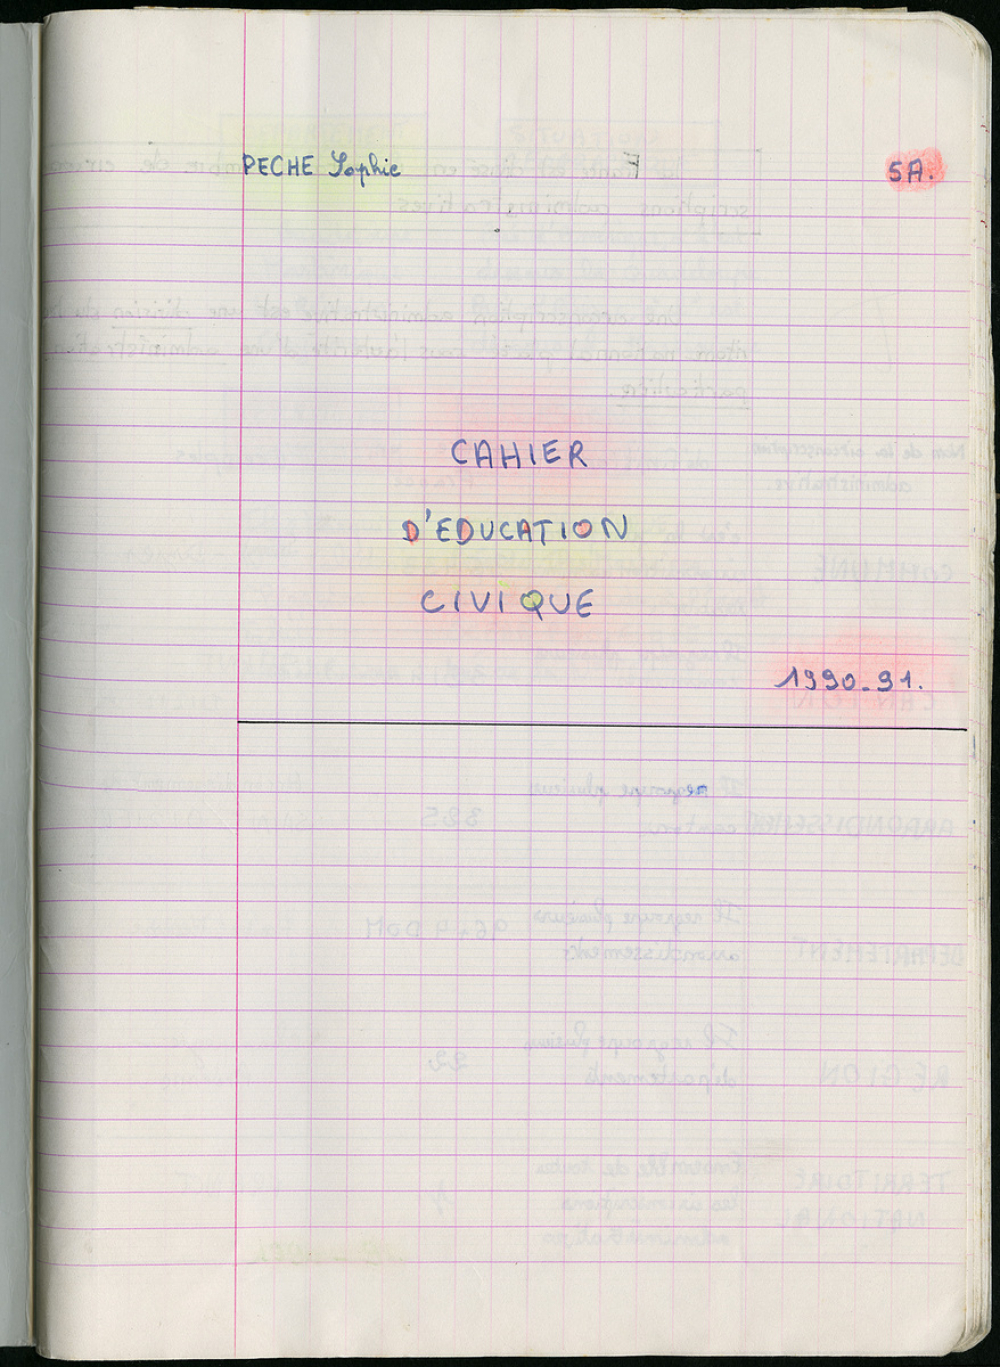 PECHE Sophie
5A.
CAHIER
D'EDUCATION
CIVIQUE
1990-91.